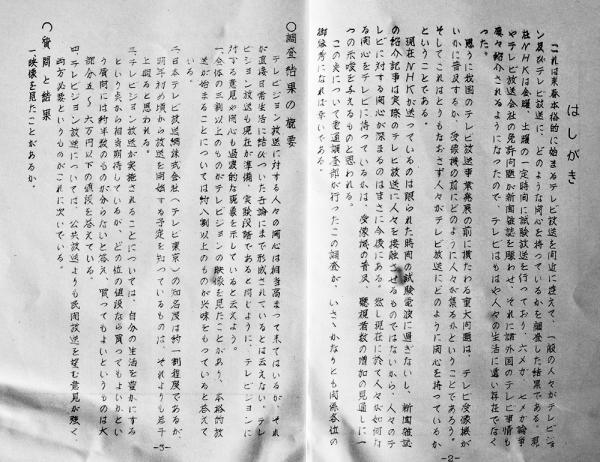 はしがき
これは来春本格的に始まるテレビ放送を間近に控えて、一般の人々がテレビジョ
ン及びテレビ放送に、どのような関心を持っているかを調査した結果である。現
在ＮＨＫは金曜、土曜の一定時間に試験放送を行っており、六メガ、七メガ論争
やテレビ放送会社の免許問題が新聞雑誌を賑わせ、それに諸外国のテレビ事情も
屡々紹介されるようになったので、テレビはもはや人々の生活に遠い存在でなく
なった。
思うに我国のテレビ放送事業発展の前に横たわる重大問題は、テレビ受像機が
いかに普及するか、受像機の前にどのように人々が集るかということであろう。
そしてこれはとりもなおさず人々がテレビ放送にどのように関心を持っているか
ということである。
現在ＮＨＫが送っているのは限られた時間の試験電波に過ぎないし、新聞雑誌
の紹介記事は実際のテレビ放送に人々を接触させるものではないから、人々のテ
レビに対する関心が深まるのはまさに今後にある。然し現在に於て人々が如何な
る関心をテレビに持っているかは、受像機の普及、聴視者数の増加の見通しに一
つの示唆を与えるものと思われる。
この点について電通調査部が行ったこの調査が、いさゝかなりとも関係各位の
御参考になれば幸いである
-2-
〇調査結果の概要
テレビジョン放送に対する人々の関心は相当高まって来てはいるが、それ
が直接日常生活に結びついた与論にまで形成されているとは云えない。テレ
ビジョン放送も現在が準備、実験段階であると同じように、テレビジョンに
対する意見や関心も過渡的な現象を示していると云えよう。
一、全体の三割以上のものがテレビジョンの映像を見たことがあり、本格的放
送が始まることについては約八割以上のものが興味をもっていると答えて

二、日本テレビ放送網株式会社（テレビ東京）の知名度は約一割程度であるが、
明年初め頃から放送を開始する予定を知っているものは、それよりも若干
上廻ると思われる。
三、テレビジョン放送が実施されることについては、自分の生活を豊かにする
という点から相当期待しているが、どの位の値段なら買ってもよいかとい
う質問には約半数のものが分らないと答え、買ってもよいというものは大
部分五〜六万円以下の値段を答えている。
四、テレビジョン放送については、公共放送よりも民間放送を望む意見が強く、
両方必要というものがこれに次いでいる。
〇質問と結果
一、映像を見たことがあるか。
-3-